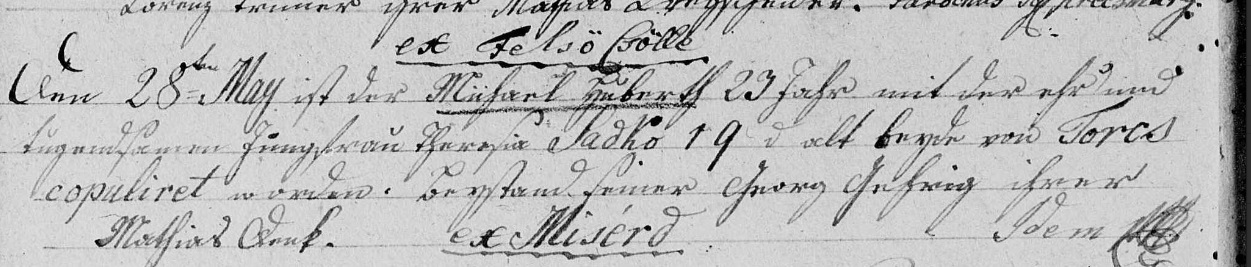 Lorenz Trinner ihrer Mathias
ex Felsö Csölle
Den 28ten May ist der Michael Huberth 23 Jahr mit der ehr und
tugendsamen Jungfrau Theresia Sadko 19 d alt beyde von Torcs
copuliret worden. Beystand seiner Georg Gehrig ihrer
Mathias Denk. ex Misérd Idem